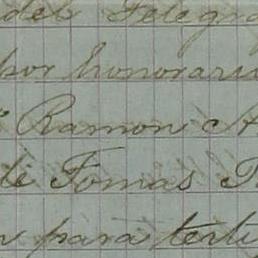 del Telegra
por honorari
Ramon A
de Tomas
para